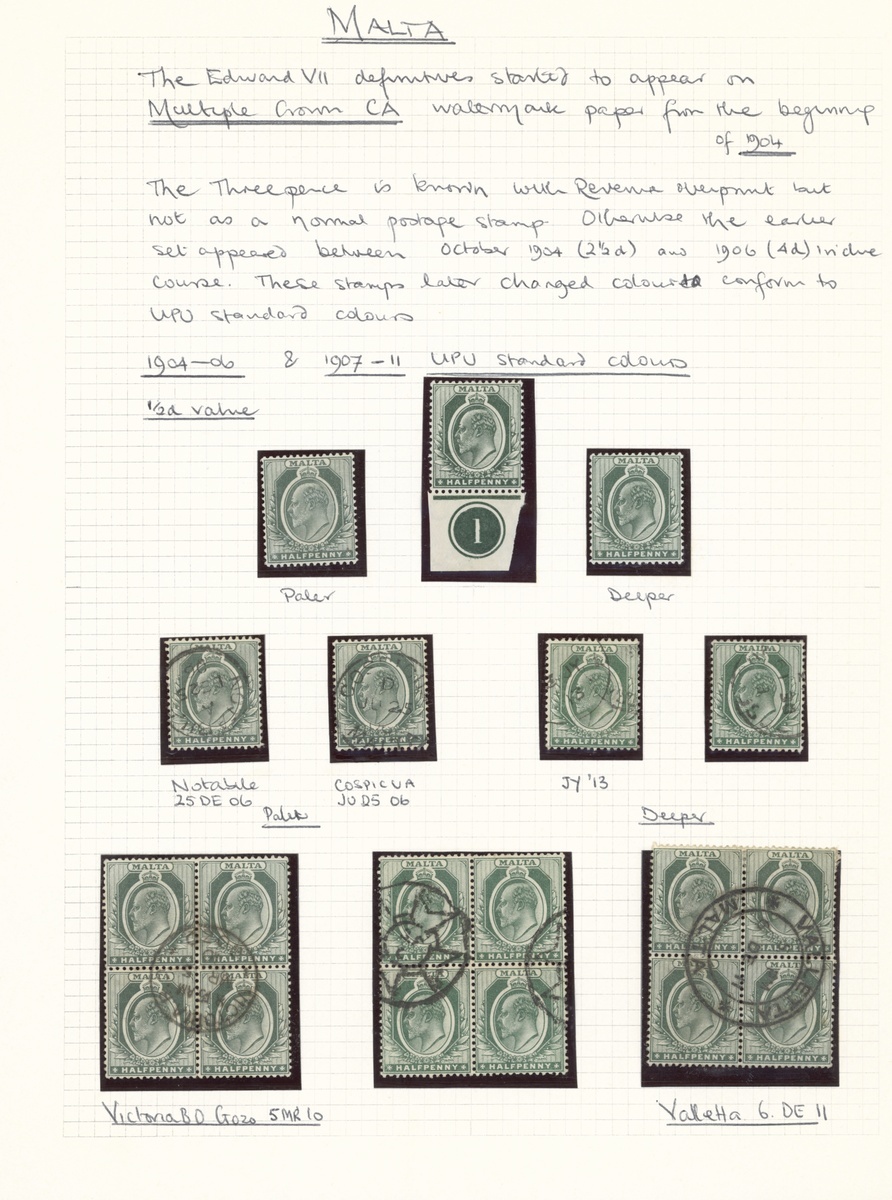 MALTA
The Edward VII definitives started to appear on
Multiple Crown CA watermark paper from the beginning
of 1904
The Threepence is known with Revenue overprint but
not as a normal postage stamp. Otherwise the earlier
set appeared between October 1904 (2½d) and 1906 (4d) in due
course. These stamps later changed colour to conform to
UPU standard colours
1904-06 & 1907-11 UPU standard colours
½d value
MALTA
HALFPENNY
1
MALTA
HALFPENNY
MALTA
HALFPENNY
Paler
Deeper
MALTA
HALFPENNY
MALTA
HALFPENNY
MALTA
HALFPENNY
MALTA
HALFPENNY
Notabile
25 DE 06
COSPICUA
JU 25 06
JY '13
Paler
Deeper
MALTA MALTA
HALFPENNY HALFPENNY
MALTA MALTA
HALFPENNY HALFPENNY
MALTA MALTA
HALFPENNY HALFPENNY
MALTA MALTA
HALFPENNY HALFPENNY
MALTA MALTA
HALFPENNY HALFPENNY
MALTA MALTA
HALFPENNY HALFPENNY
VALLETTA
MALTA
Victoria B.O. Gozo 5 MR 10
Valletta 6. DE 11